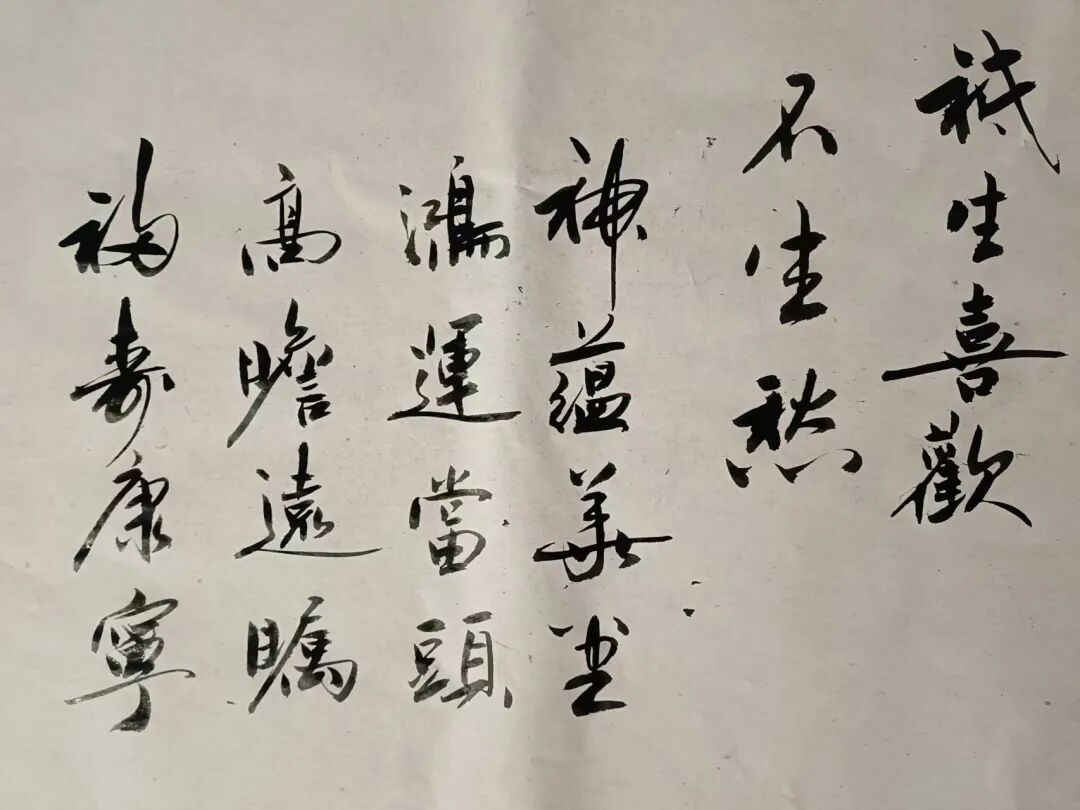 祗生喜歡
不生愁
神藴華堂
鴻運當頭
高瞻遠矚
福壽康寧